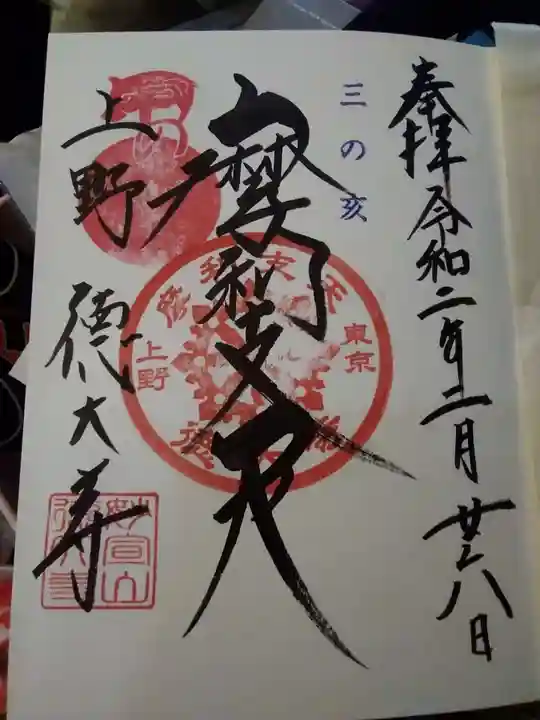 奉拝 令和二年二月廿八日
三の亥
摩利支天
上野 徳大寺
東京
上野
妙宣山
徳大寺